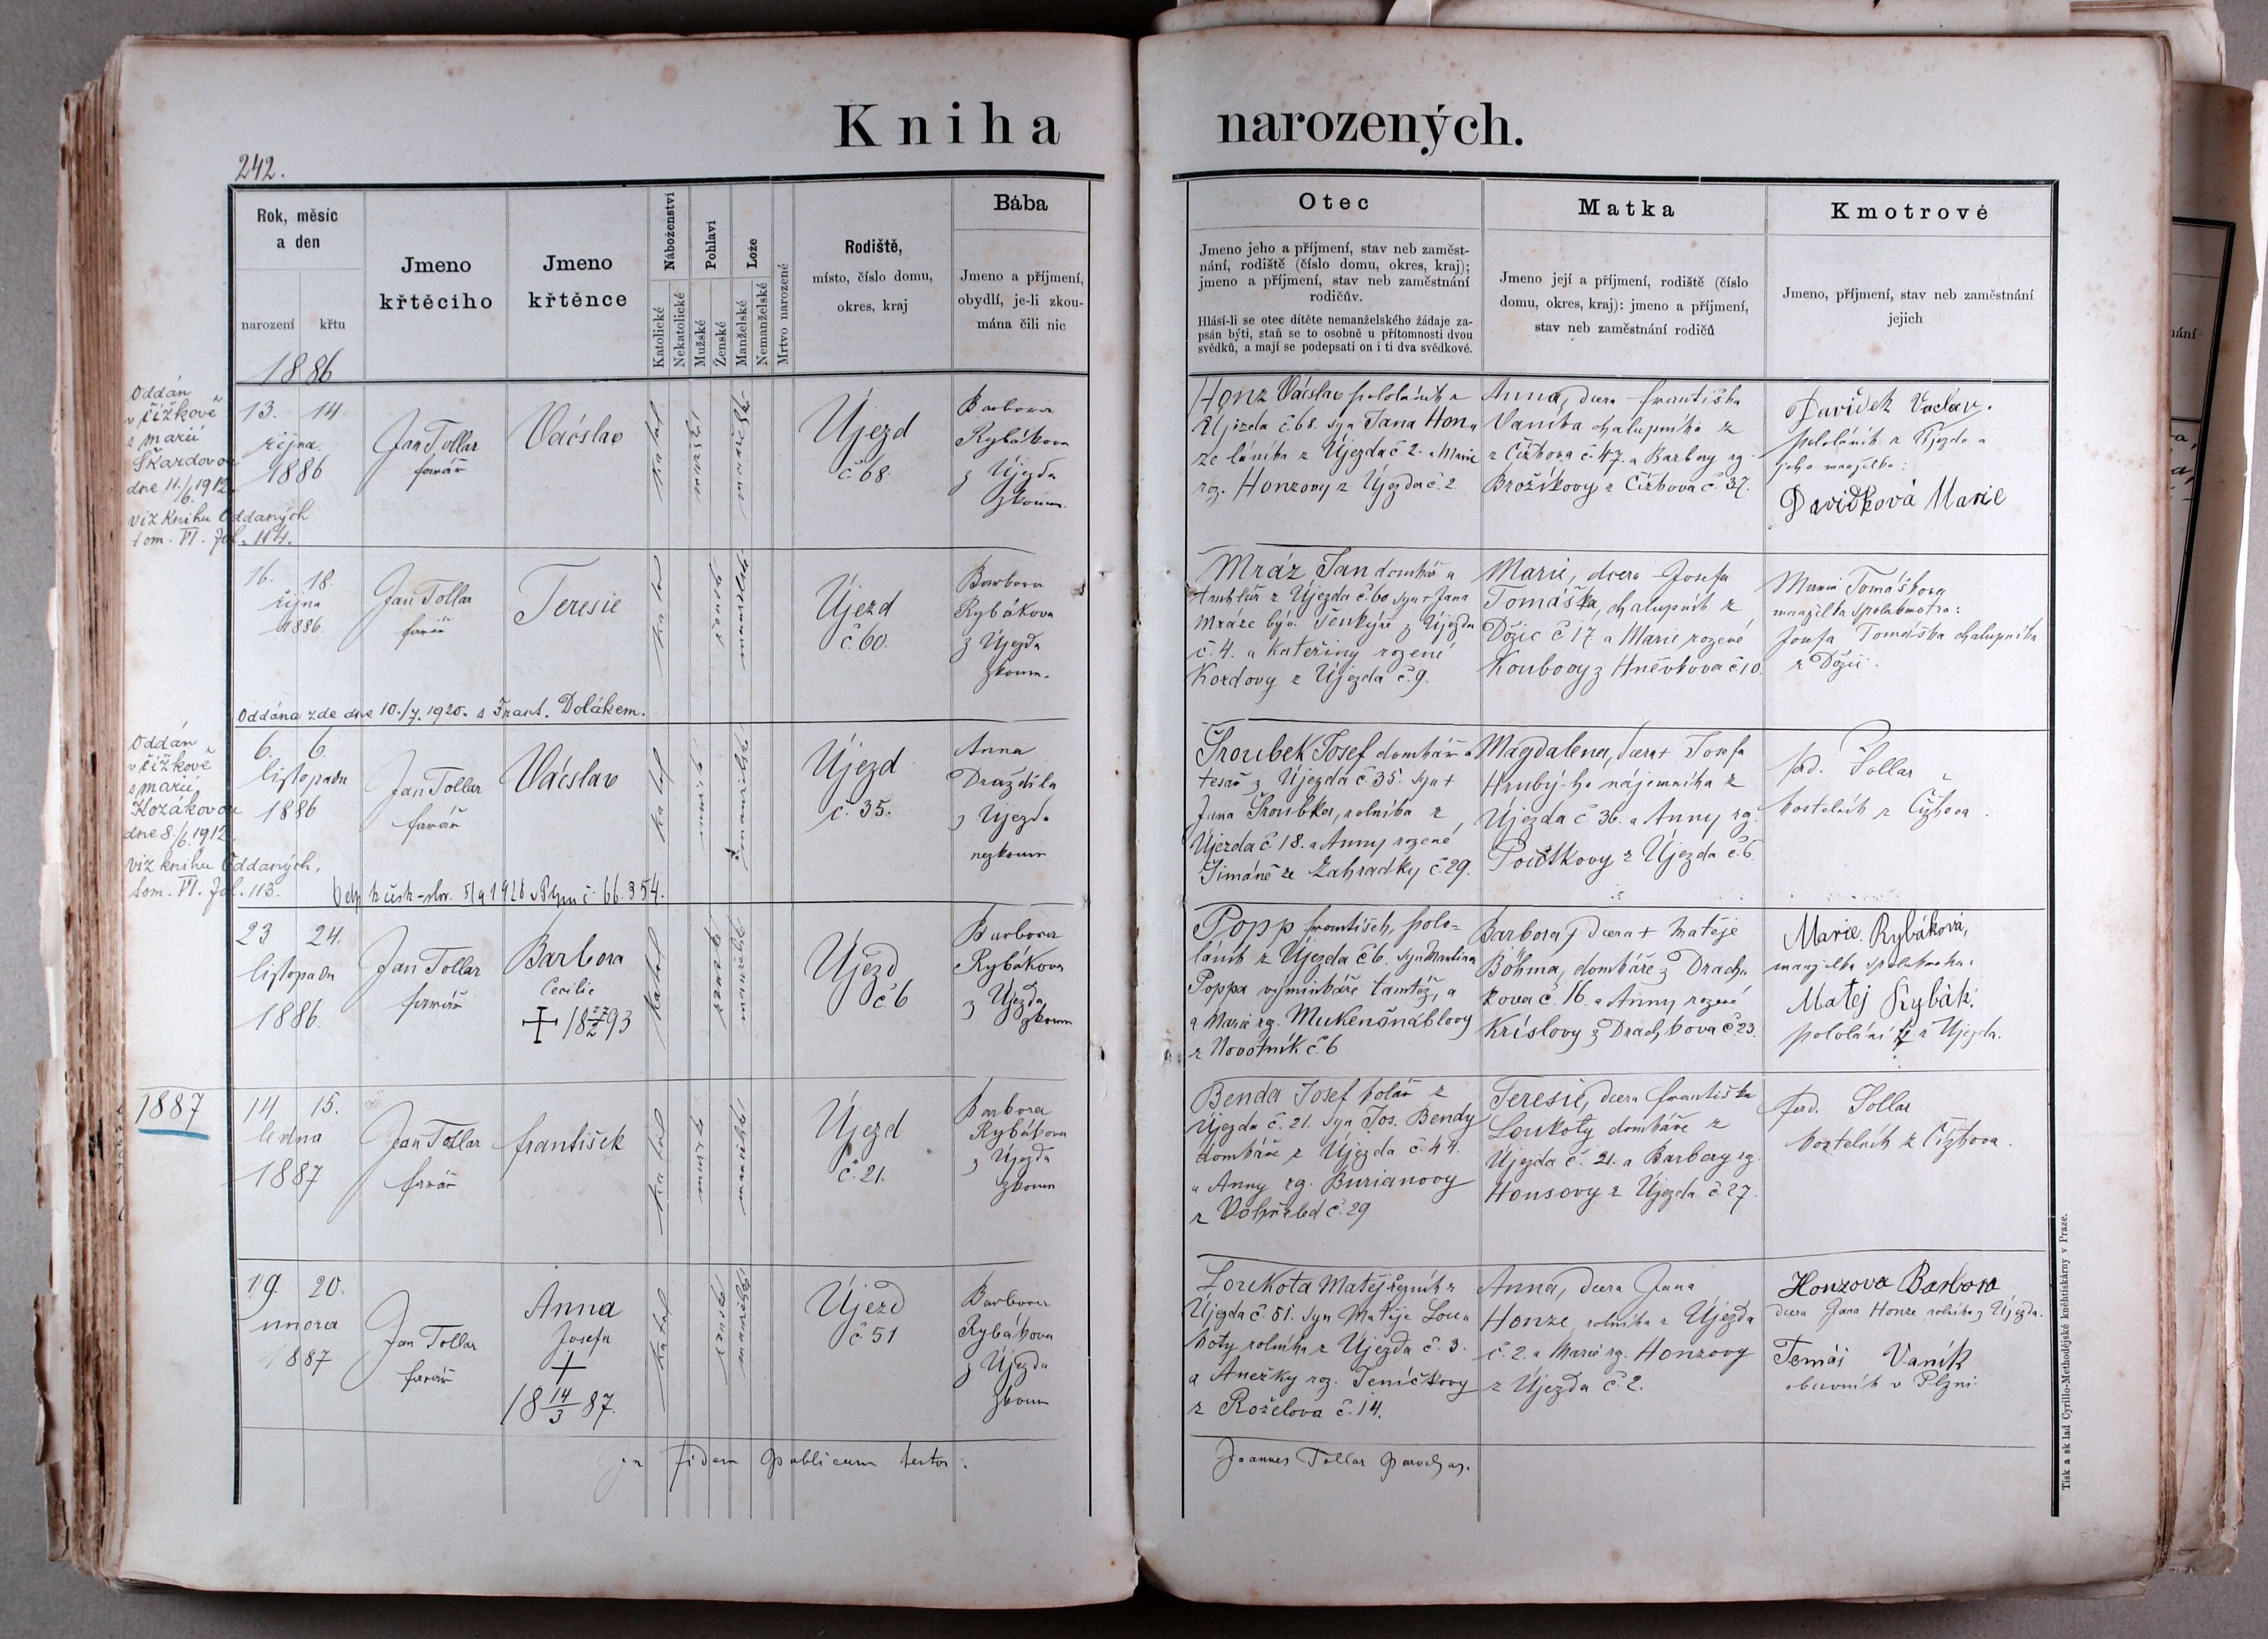 Kniha narozených.
242.
Rok, měsíc
a den
narození křtu
1886
Jmeno
křtěcího
Jmeno
křtěnce
Náboženství
Katolické
Nekatolické
Pohlaví
Mužské
Ženské
Lože
Manželské
Nemanželské
Mrtvo narozené
Rodiště,
místo, číslo domu,
okres, kraj
Bába
Jmeno a příjmení,
obydlí, je-li zkou-
mána čili nic
Otec
Jmeno jeho a příjmení, stav neb zaměst-
nání, rodiště (číslo domu, okres, kraj);
jmeno a příjmení, stav neb zaměstnání
rodičův.
Hlásí-li se otec dítěte nemanželského žádaje za-
psán býti, staň se to osobně u přítomnosti dvou
svědků, a mají se podepsati on i ti dva svědkové.
Matka
Jmeno její a příjmení, rodiště (číslo
domu, okres, kraj): jmeno a příjmení,
stav neb zaměstnání rodičů
Kmotrové
Jmeno, příjmení, stav neb zaměstnání
jejich
Oddán
v Čížkově
s Marií
Škardovou
dne 11./6. 1912.
viz Knihu Oddaných
tom. VI. fol. 114.
13. 14
října
1886
Jan Tollar
farář
Václav
katol
mužské
manželské
Újezd
č. 68.
Barbora
Rybákova
z Újezda
zkoum.
Honz Václav pololáník z
Újezda č. 68. syn Jana Hon
ze láníka z Újezda č. 2. a Marie
roz. Honzovy z Újezda č. 2
Anna, dcera Františka
Vaníka chalupníka z
z Čížkova č. 47. a Barbory rz.
Brožíkovy z Čížkova č. 37.
Davídek Václav.
pololáník z Újezda a
jeho manželka:
Davidková Marie
16. 18.
října
1886.
Jan Tollar
farář
Teresie
katol
ženské
manželské
Újezd
č. 60.
Barbora
Rybákova
z Újezda
zkoum.
Oddána zde dne 10./7. 1920. s Frant. Dolákem.
Mráz Jan domkář a
truhlář z Újezda č. 60 syn + Jana
Mráze býv. šenkýře z Újezda
č. 4. a Kateřiny rozené
Kozdovy z Újezda č. 9.
Marie, dcera Josefa
Tomáška, chalupník z
Dožic č 17 a Marie rozené
Koubovy z Hněvkova č 10.
Marie Tomáškova
manželka spolukmotra:
Josefa Tomáška chalupníka
z Dožic.
Oddán
v Čížkově
s Marií
Kozákovou
dne 8./6. 1912.
viz knihu Oddaných,
tom. VI. fol. 113.
6. 6.
listopadu
1886
Jan Tollar
farář
Václav
katol
mužské
manželské
Újezd
č. 35.
Anna
Draždila
z Újezda
nezkoum
5/9 1928 č. 66.354.
Šroubek Josef domkář a
tesař z Újezda č. 35. syn +
Jana Šroubka, rolníka z
Újezda č. 18. a Anny rozené
Šimáně ze Zahrádky č. 29.
Magdalena, dcera + Josefa
Hrubý-ho nájemníka z
Újezda č. 36. a Anny rz.
z Újezda č. 6.
ferd. Tollar
kostelník z Čížkova
23 24.
listopadu
1886.
Jan Tollar
farář
Barbora
Cecilie
+ 18 27/2 93
katol
ženské
manželské
Újezd
č 6
Barbora
Rybákova
z Újezda
zkoum
Popp František, polo=
láník z Újezda č 6. syn Martina
Poppa výminkáře tamtéž, a
a Marie rz. Mukenšnáblovy
z Novotník č. 6
Barbora, dcera + Matěje
Böhma, domkáře z Drach
kova č. 16. a Anny rozené
Kríslovy z Drachkova č 23.
Marie Rybáková,
manželka spolukmotra:
Matěj Rybák.
pololáník z Újezda.
1887
14 15.
ledna
1887
Jan Tollar
farář
František
katol
mužské
manželské
Újezd
č. 21.
Barbora
Rybákova
z Újezda
zkoum
Benda Josef kolář z
Újezda č. 21. syn Jos. Bendy
domkáře z Újezda č. 44.
a Anny rz. Burianovy
z Vohřeled č. 29
Teresie, dcera Františka
Loukoty domkáře z
Újezda č. 21. a Barbory rz.
Honsovy z Újezda č. 27.
ferd. Tollar
kostelník z Čížkova.
19. 20.
února
1887
Jan Tollar
farář
Anna
Josefa
+
18 14/3 87.
katol
ženské
manželské
Újezd
č 51
Barbora
Rybákova
z Újezda
zkoum
Loukota Matěj řezník z
Újezda č. 51. syn Matěje Lou
koty rolníka z Újezda č. 3.
a Anežky roz. Jeníčkovy
z Roželova č. 14.
Anna, dcera Jana
Honze, rolníka z Újezda
č. 2. a Marie rz. Honzovy
z Újezda č. 2.
Honzova Barbora
dcera Jana Honze rolníka z Újezda.
Tomáš Vaník
obuvník v Plzni.
In fidem publicam testor:
Joannes Tollar parochus.
Tisk a sklad Cyrillo-Methodějské knihtiskárny v Praze.